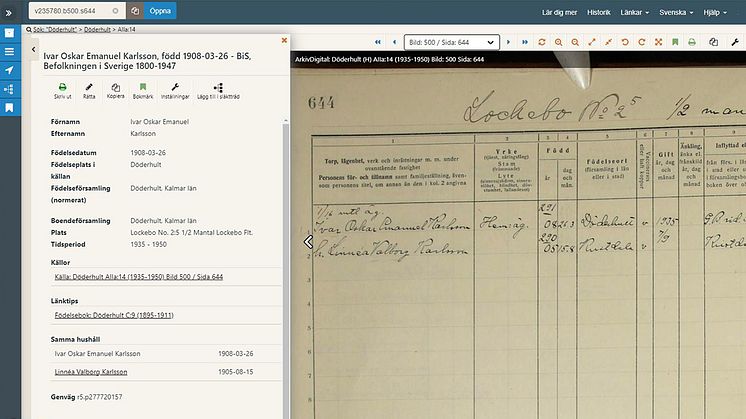 v235780.b500.s644
Öppna
Lär dig mer Historik Länkar Svenska Hjälp
Sök: "Döderhult" > Döderhult > AIIa:14
Bild: 500 / Sida: 644
Ivar Oskar Emanuel Karlsson, född 1908-03-26 - BiS,
Befolkningen i Sverige 1800-1947
Skriv ut Rätta Kopiera Bokmärk Inställningar Lägg till i släktträd
Förnamn Ivar Oskar Emanuel
Efternamn Karlsson
Födelsedatum 1908-03-26
Födelseplats i Döderhult
källan
Födelseförsamling Döderhult, Kalmar län
(normerat)
Boendeförsamling Döderhult, Kalmar län
Plats Lockebo No. 2:5 1/2 Mantal Lockebo Flt.
Tidsperiod 1935 - 1950
Källor
Källa: Döderhult AIIa:14 (1935-1950) Bild 500 / Sida 644
Länktips
Födelsebok: Döderhult C:9 (1895-1911)
Samma hushåll
Ivar Oskar Emanuel Karlsson 1908-03-26
Linnéa Valborg Karlsson 1905-08-15
Genväg r5.p277720157
ArkivDigital: Döderhult (H) AIIa:14 (1935-1950) Bild: 500 Sida: 644
644
Lockebo No 2⁵ 1/2 man
1 2 3 4 5 6 7 8 9
Torp, lägenhet, verk och inrättningar m. m. under
ovanstående fastighet
Personens för- och tillnamn samt familjeställning, även-
som personens titel, om annan än den i kol. 2 angivna
Yrke
(tjänst, näringsfång)
Stam
(främmande)
Lyte
Född
år
dag
och
månad
Födelseort
(församling i län
eller i stad)
Gift
år, dag
och
månad
Inflyttad
Ivar Oskar Emanuel Karlsson Hem.äg. 08 26.3 Döderhult v 1935
291
h. Linnéa Valborg Karlsson 05 15.8 v 7/9
290
1
2
3
4
5
6
7
8